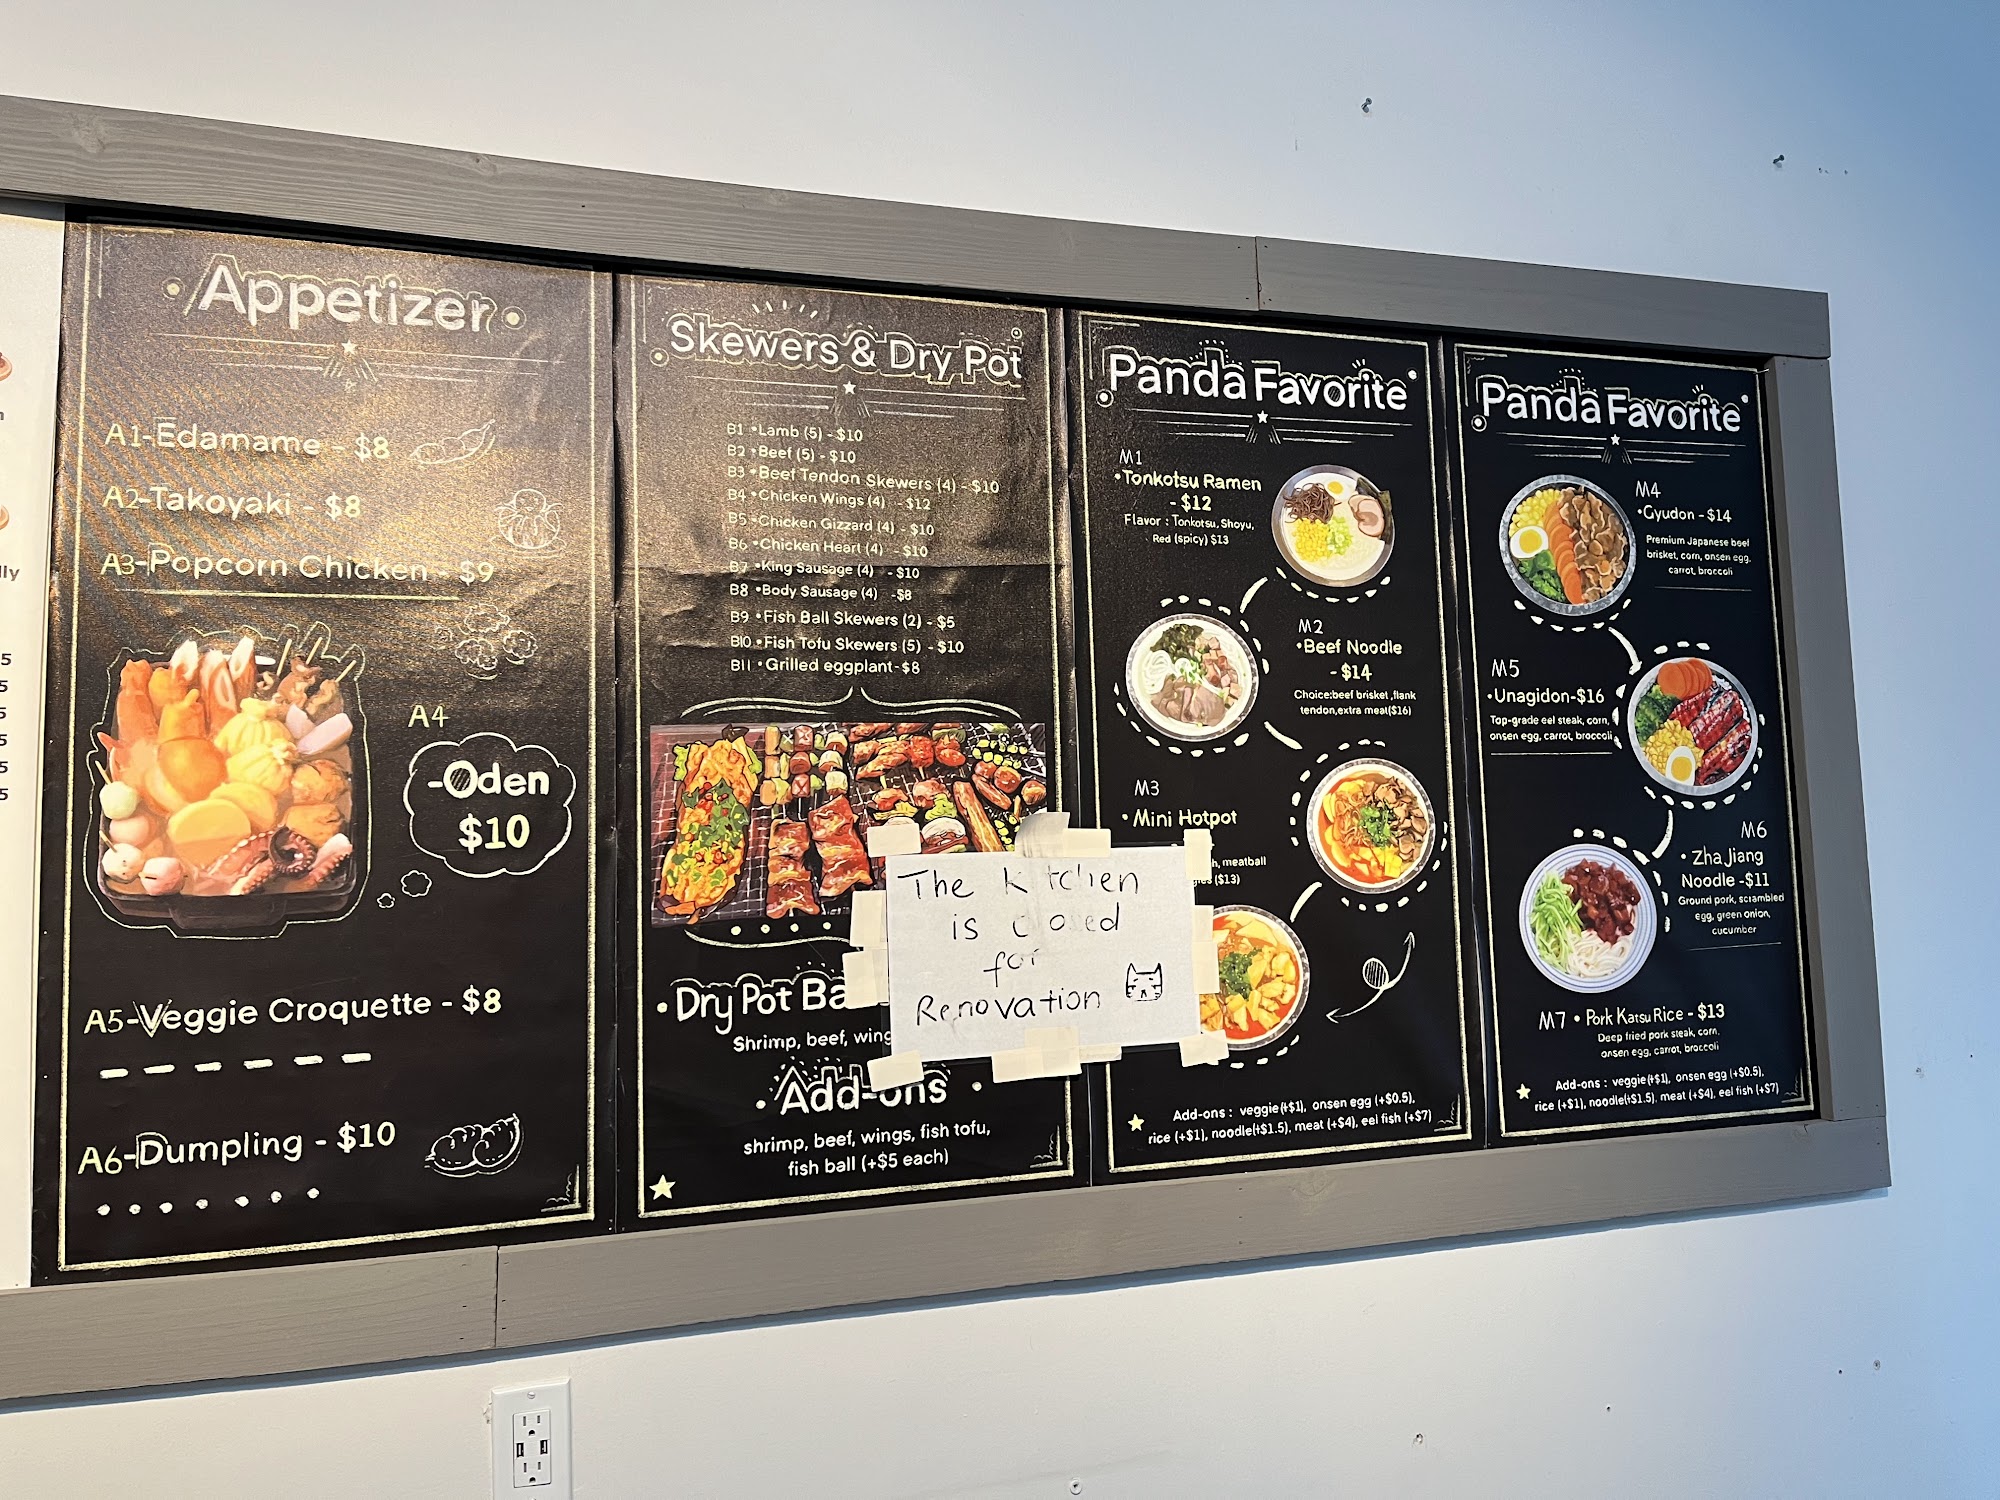 Appetizer
A1-Edamame - $8
A2-Takoyaki - $8
A3-Popcorn Chicken - $9
A4
-Oden
$10
A5-Veggie Croquette - $8
A6-Dumpling - $10
Skewers & Dry Pot
B1 •Lamb (5) - $10
B2 •Beef (5) - $10
B3 •Beef Tendon Skewers (4) - $10
B4 •Chicken Wings (4) - $12
B5 •Chicken Gizzard (4) - $10
B6 •Chicken Heart (4) - $10
B7 •King Sausage (4) - $10
B8 •Body Sausage (4) -$8
B9 •Fish Ball Skewers (2) - $5
B10 •Fish Tofu Skewers (5) - $10
B11 •Grilled eggplant-$8
•Dry Pot Ba
Shrimp, beef, wing
•Add-ons•
shrimp, beef, wings, fish tofu,
fish ball (+$5 each)
The Kitchen
is closed
for
Renovation
Panda Favorite
M1
•Tonkotsu Ramen
- $12
Flavor : Tonkotsu, Shoyu,
Red (spicy) $13
M2
•Beef Noodle
- $14
Choice:beef brisket ,flank
tendon,extra meat($16)
M3
•Mini Hotpot
meatball
($13)
Add-ons : veggie(+$1), onsen egg (+$0.5),
rice (+$1), noodle(+$1.5), meat (+$4), eel fish (+$7)
Panda Favorite
M4
•Gyudon - $14
Premium Japanese beef
brisket, corn, onsen egg,
carrot, broccoli
M5
•Unagidon-$16
Top-grade eel steak, corn,
onsen egg, carrot, broccoli
M6
•Zha Jiang
Noodle -$11
Ground pork, scrambled
egg, green onion,
cucumber
M7 •Pork Katsu Rice - $13
Deep fried pork steak, corn,
onsen egg, carrot, broccoli
Add-ons : veggie(+$1), onsen egg (+$0.5),
rice (+$1), noodle(+$1.5), meat (+$4), eel fish (+$7)